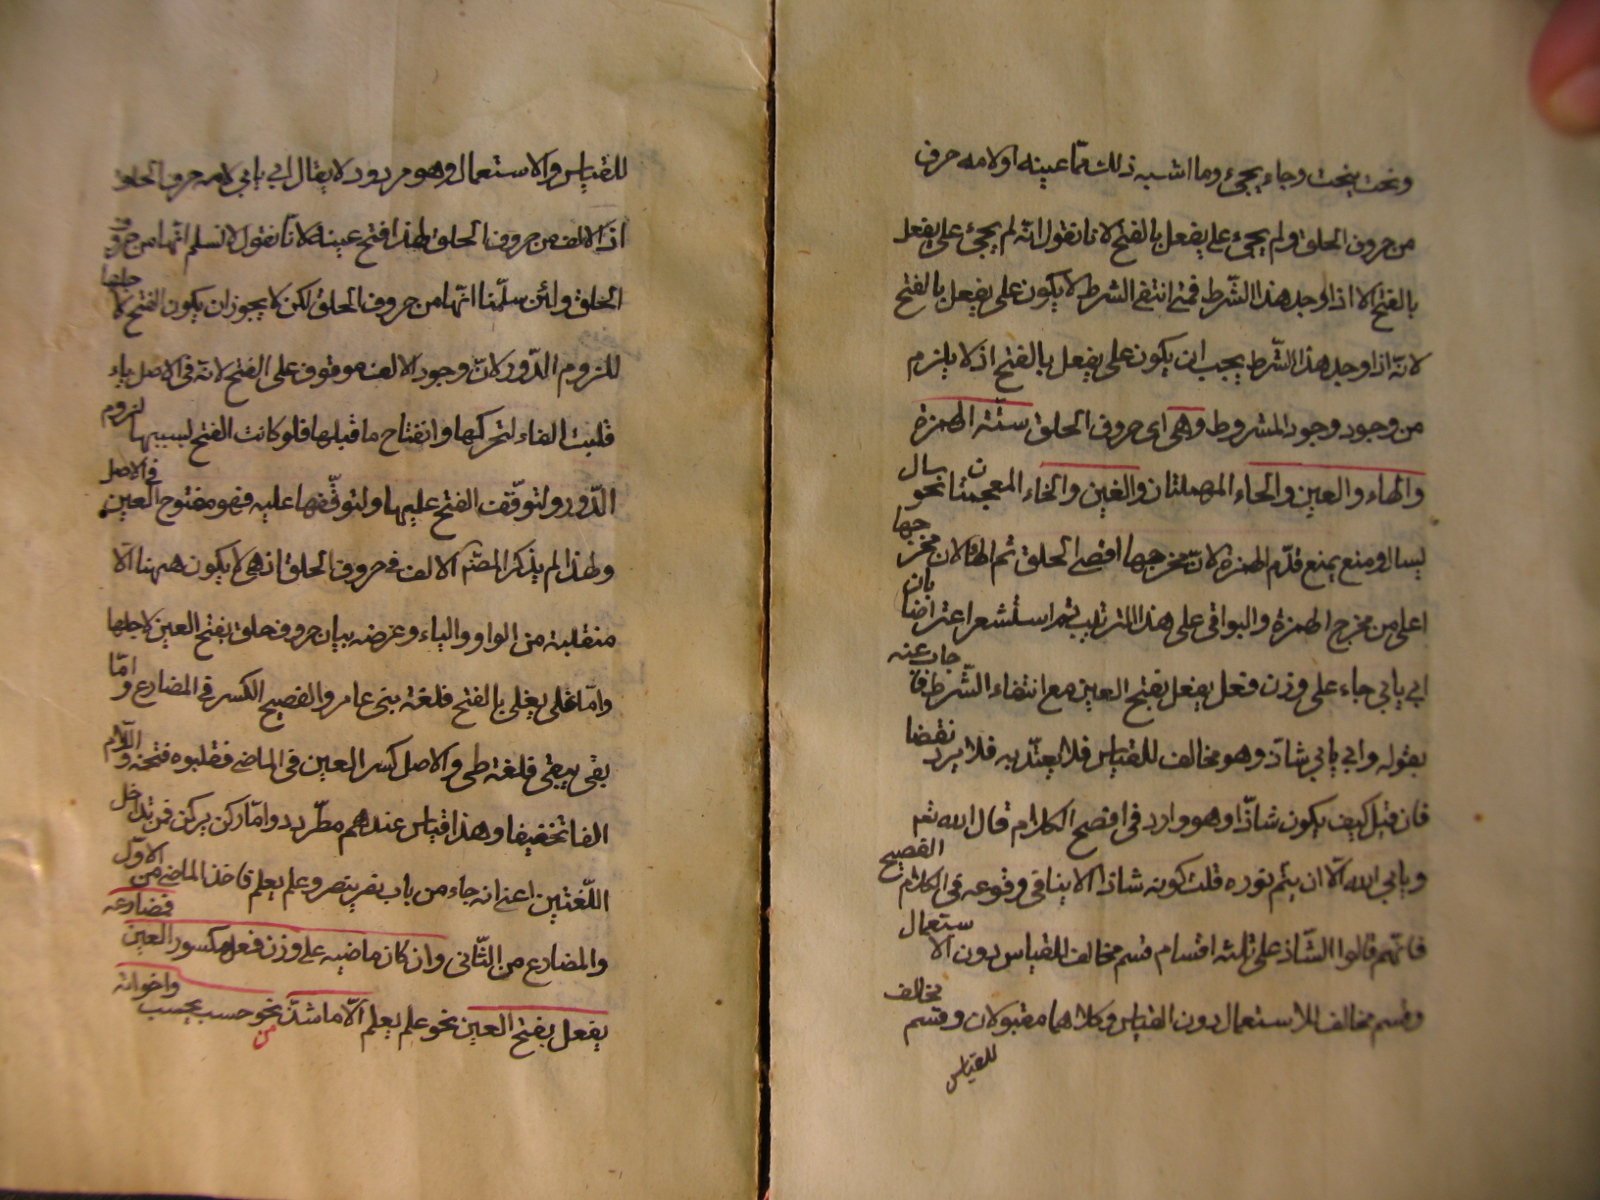 ونحت ينحت وجاء يجيء وما اشبه ذلك مما عينه او لامه حرف
من حروف الحلق ولم يجيء على يفعل بالفتح لانا نقول انه لم يجيء على يفعل
بالفتح الا اذا وجد هذا الشرط فمتى انتفى الشرط لا يكون على يفعل بالفتح
لا انه اذا وجد هذا الشرط يجب ان يكون على يفعل بالفتح اذ لا يلزم
من وجود وجود المشروط وهي اى حروف الحلق ستّة الهمزة
والهاء والعين والحاء المهملتان والغين والخاء المعجمتان نحو سال
يسال ومنع يمنع قدّم الهمزة لانّ مخرجها اقصى الحلق ثم الهاء لان مخرجها
اعلى من مخرج الهمزة والبواقى على هذا الترتيب ثم استشعر اعتراضا بان
ابى يابى جاء على وزن فعل يفعل بفتح العين مع انتفاء الشّرط فاجاب عنه
بقوله وابى يابى شاذ وهو مخالف للقياس فلا يعتدّ به فلا يرد نقضا
فان قيل كيف يكون شاذّا وهو وارد فى افصح الكلام قال الله تعم
ويابى الله الّا ان يتم نوره قلت كونه شاذا لا ينافى وقوعه فى الكلام الفصيح
فانّهم قالوا الشّاذ على ثلثة اقسام قسم مخالف للقياس دون الاستعمال
وقسم مخالف للاستعمال دون القياس وكلاهما مقبولان وقسم مخالف
للقياس
للقياس والاستعمال وهو مردود لا يقال ابى يابى لامه حرف الحلق
اذ الالف من حروف الحلق ولهذا فتح عينه لانّا نقول لا نسلم انّها من حروف
الحلق ولئن سلّمنا انّها من حروف الحلق لكن لا يجوز ان يكون الفتح لاجلها
للزوم الدّور لانّ وجود الالف موقوف على الفتح لانّه فى الاصل ياء
قلبت الفاء لتحركها وانفتاح ما قبلها فلو كانت الفتح بسببها لزوم
الدّور ولتوقّفت الفتح عليها ولتوقّفها عليه فهو مفتوح العين فى الاصل
ولهذا لم يذكر المصّ الالف فى حروف الحلق اذ هى لا يكون ههنا الّا
منقلبة من الواو والياء وغرضه بيان حروف حلق يفتح العين لاجلها
وامّا قلى يقلى بالفتح فلغة بنى عامر والفصيح الكسر فى المضارع وامّا
بقى يبقى فلغة طى والاصل كسر العين فى الماضى فقلبوه فتحة واللّام
الفا تخفيفا وهذا قياس عندهم مطّرد وامّا ركن يركن فمن تداخل
اللّغتين اعنى انه جاء من باب نصر ينصر وعلم يعلم فاخذ الماضى من الاوّل
والمضارع من الثّانى وان كان ماضيه على وزن فعل مكسور العين فمضارعه
يفعل بفتح العين نحو علم يعلم الّا ما شذّ من نحو حسب يحسب واخواته